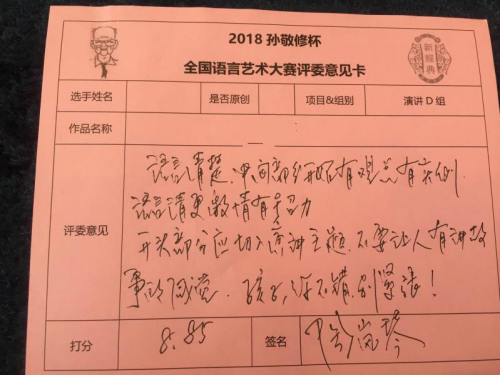 2018 孙敬修杯
全国语言艺术大赛评委意见卡
新雅典
选手姓名 是否原创 项目&组别 演讲 D 组
作品名称
评委意见
语言清楚,中间部分开始有观点有实例.
语言清更激情有力
开头部分应切入演讲主题.不要让人有讲故
事的感觉.孩子,你不错,别紧张!
打分 8.85 签名 岚琴